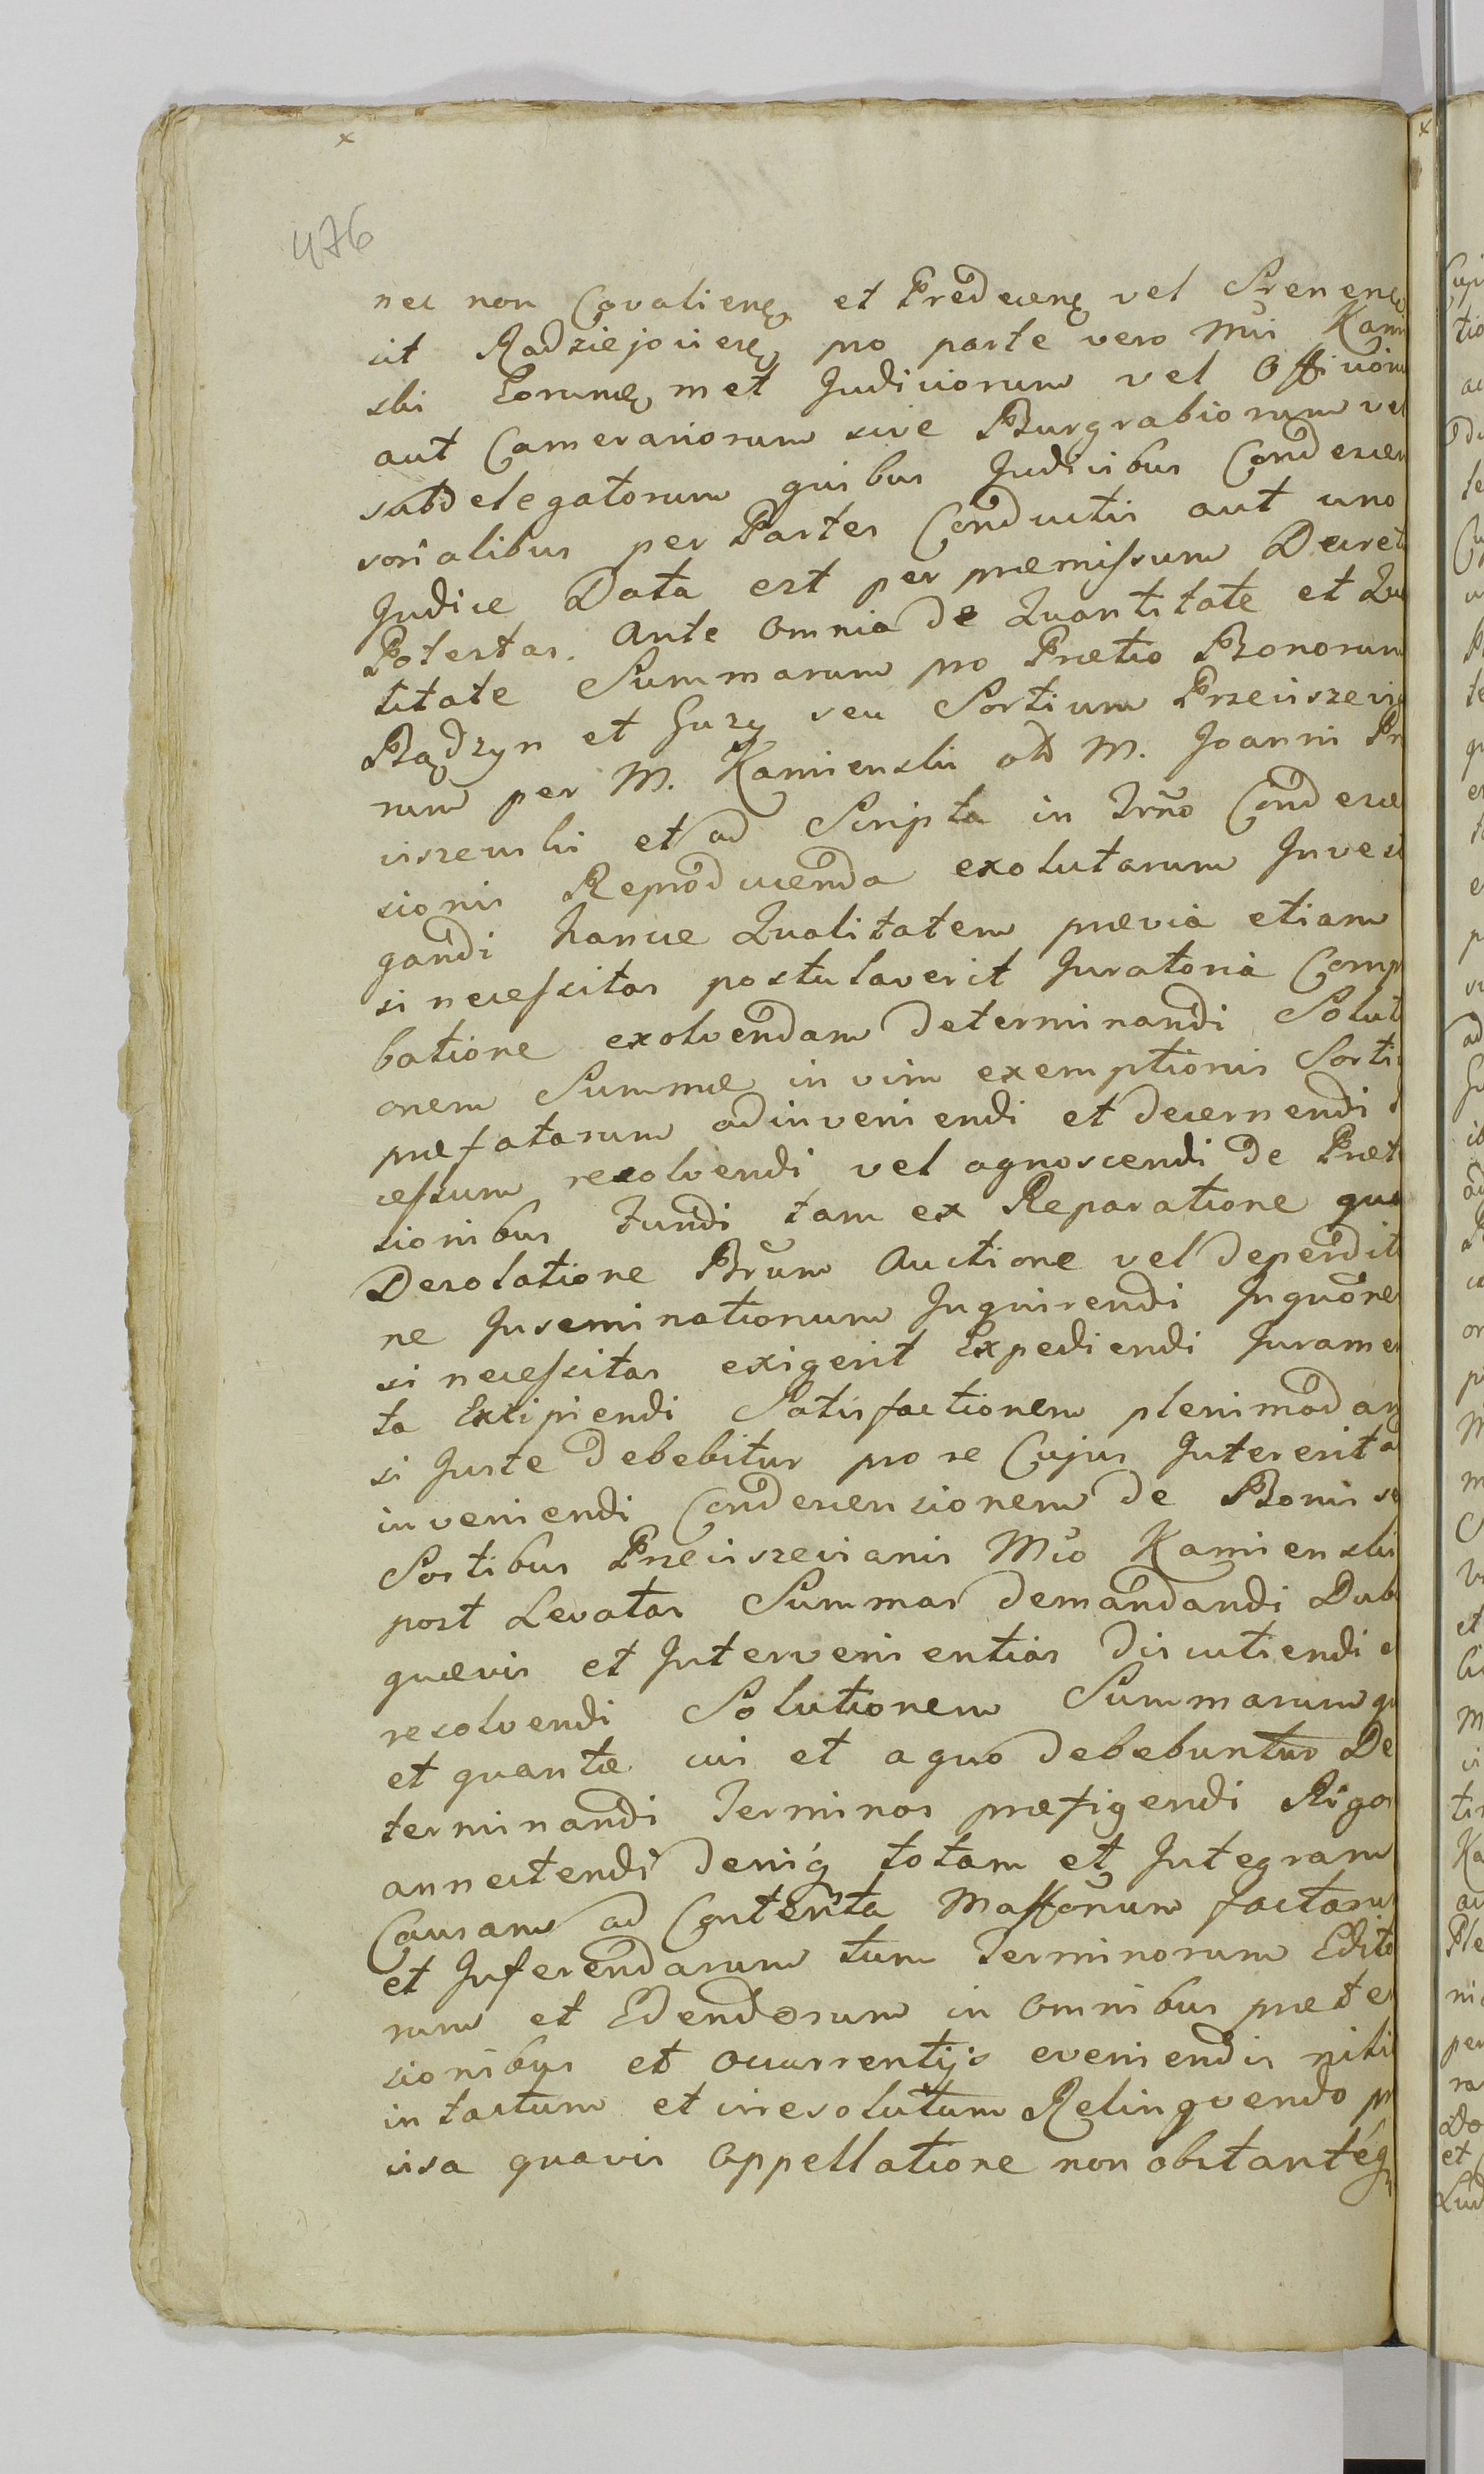 476
nec non Covaliensę et Prędecenę vel Srenenę
sit Radziejovienę pro parte vero Mũi Kami
ski Eorumq met Judiciorum vel Officiõrũ
aut Camerariorum sive Burgrabiorum vel
subdelegatorum quibus Judicibus Condescen
sorialibus per Partes Conductis aut uno
Judice Data est per præmissum Decret
Potestas. Ante Omnia de Quantitate et Qua
titate Summarum pro Prætio Bonorum
Bądzyn et Guzy seu Sortium Przeciszevia
rum per M. Kamienski ad M. Joanni Prz
ciszewski et ad Scripta in Trño Condesce
sionis Reproducenda exolutarum Investi
gandi hancce Qualitatem prævia etiam
si necessitas postulaverit Juratoria Comp
batione exolvendam Determinandi Soluti
onem Summæ in vim exemptionis Sorti
præfatarum adinveniendi et decernendi
cessum resolvendi vel agnoscendi de Præt
sionibus Fundi tam ex Reparatione qua
Desolatione Brum Auctione vel deperditi
ne Inseminationum Inquirendi Inquõnes
si necessitas exigerit Expediendi Jurame
ta Excipiendi Satisfactionem plenimodam
si Juste debebitur pro re Cujus Intererit a
inveniendi Condescensionem de Bonis se
Sortibus Przeciszevianis Mco Kamienski
post Levatas Summas demandandi Dub
quævis et Intervenientias discutiendi e
resolvendi Solutionem Summarum qu
et quantæ cui et a quo debebuntur De
terminandi Terminos præfigendi Rigor
annectendi deniq totam et Integram
Causam ad Contenta Maffonum factaru
et Inferendarum tum Terminorum Edito
rum et Edendorum in Omnibus præte
sionibus et occurrentijs eveniendis nihil
intactum et irresolutum Relinquendo pr
cisa quavis Appellatione non obstanteq